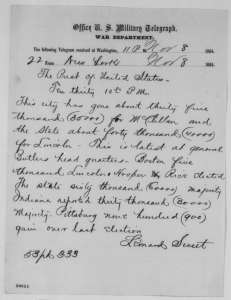 Office U. S. Military Telegraph,
WAR DEPARTMENT.
The following Telegram received at Washington, 11 P.M. Nov 8 1864.
22 From New York Nov 8 1864.
The Prest of United States.
Ten thirty 10 30 P.M.
This city has gone about thirty five
thousand (35000) for McClellan and
the State about forty thousand (40000)
for Lincoln. This is latest at general
Butlers head quarters. Boston five
thousand Lincoln & Hooper & Rice elected
The state sixty thousand (60000) majority
Indiana reported thirty thousand (30000)
Majority. Pittsburg nine hundred (900)
gain over last election
Leonard Swett